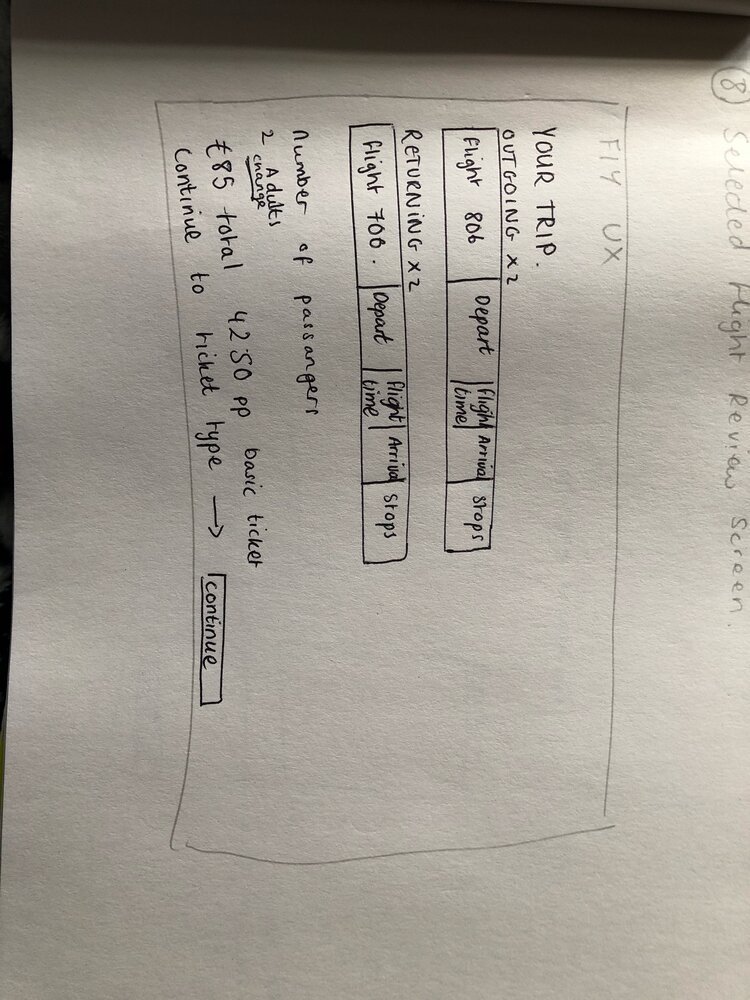 8 Selected flight Review Screen.
FlY UX
YOUR TRIP.
OUTGOING x 2
flight 806 Depart flight time Arrival stops
RETURNING x 2
flight 700. Depart flight time Arrival stops
number of passangers
2 Adults
change
£85 total 42.50 pp basic ticket
continue to ticket type → continue